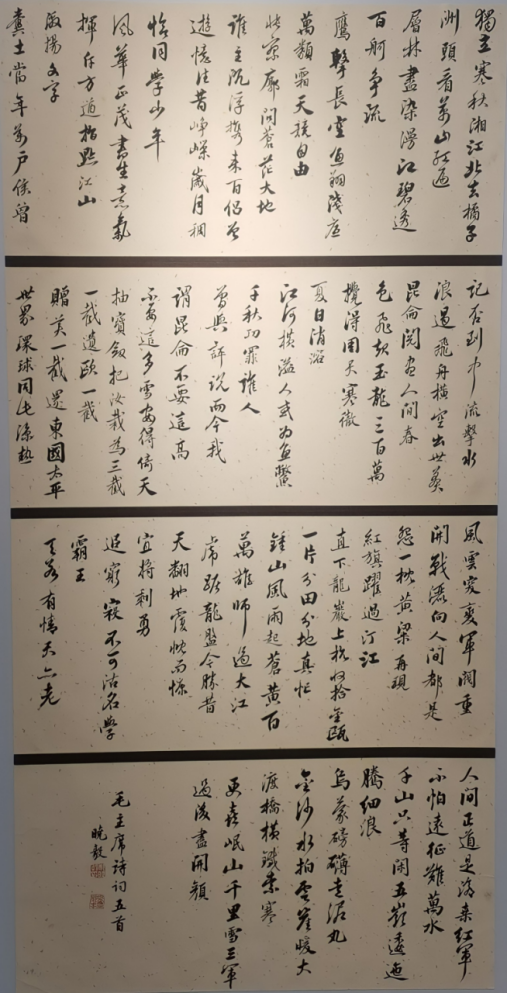 獨立寒秋湘江北去橘子
洲頭看萬山紅遍
層林盡染漫江碧透
百舸爭流
鷹擊長空魚翔淺底
萬類霜天競自由
悵寥廓問蒼茫大地
誰主沉浮攜來百侶曾
遊憶往昔崢嶸歲月稠
恰同學少年
風華正茂書生意氣
揮斥方遒指點江山
激揚文字
糞土當年萬戶侯曾
記否到中流擊水
浪遏飛舟橫空出世莽
昆侖閱盡人間春
色飛起玉龍三百萬
攪得周天寒徹
夏日消溶
江河橫溢人或為魚鱉
千秋功罪誰人
曾與評說而今我
謂昆侖不要這高
不要這多雪安得倚天
抽寶劍把汝裁為三截
一截遺歐一截
贈美一截還東國太平
世界環球同此涼熱
風雲突變軍閥重
開戰灑向人間都是
怨一枕黃粱再現
紅旗躍過汀江
直下龍巖上杭收拾金甌
一片分田分地真忙
鍾山風雨起蒼黃百
萬雄師過大江
虎踞龍盤今勝昔
天翻地覆慨而慷
宜將剩勇
追窮寇不可沽名學
霸王
天若有情天亦老
人間正道是滄桑紅軍
不怕遠征難萬水
千山只等閑五嶺逶迤
騰細浪
烏蒙磅礴走泥丸
金沙水拍雲崖暖大
渡橋橫鐵索寒
更喜岷山千里雪三軍
過後盡開顏
毛主席詩詞五首
曉毅